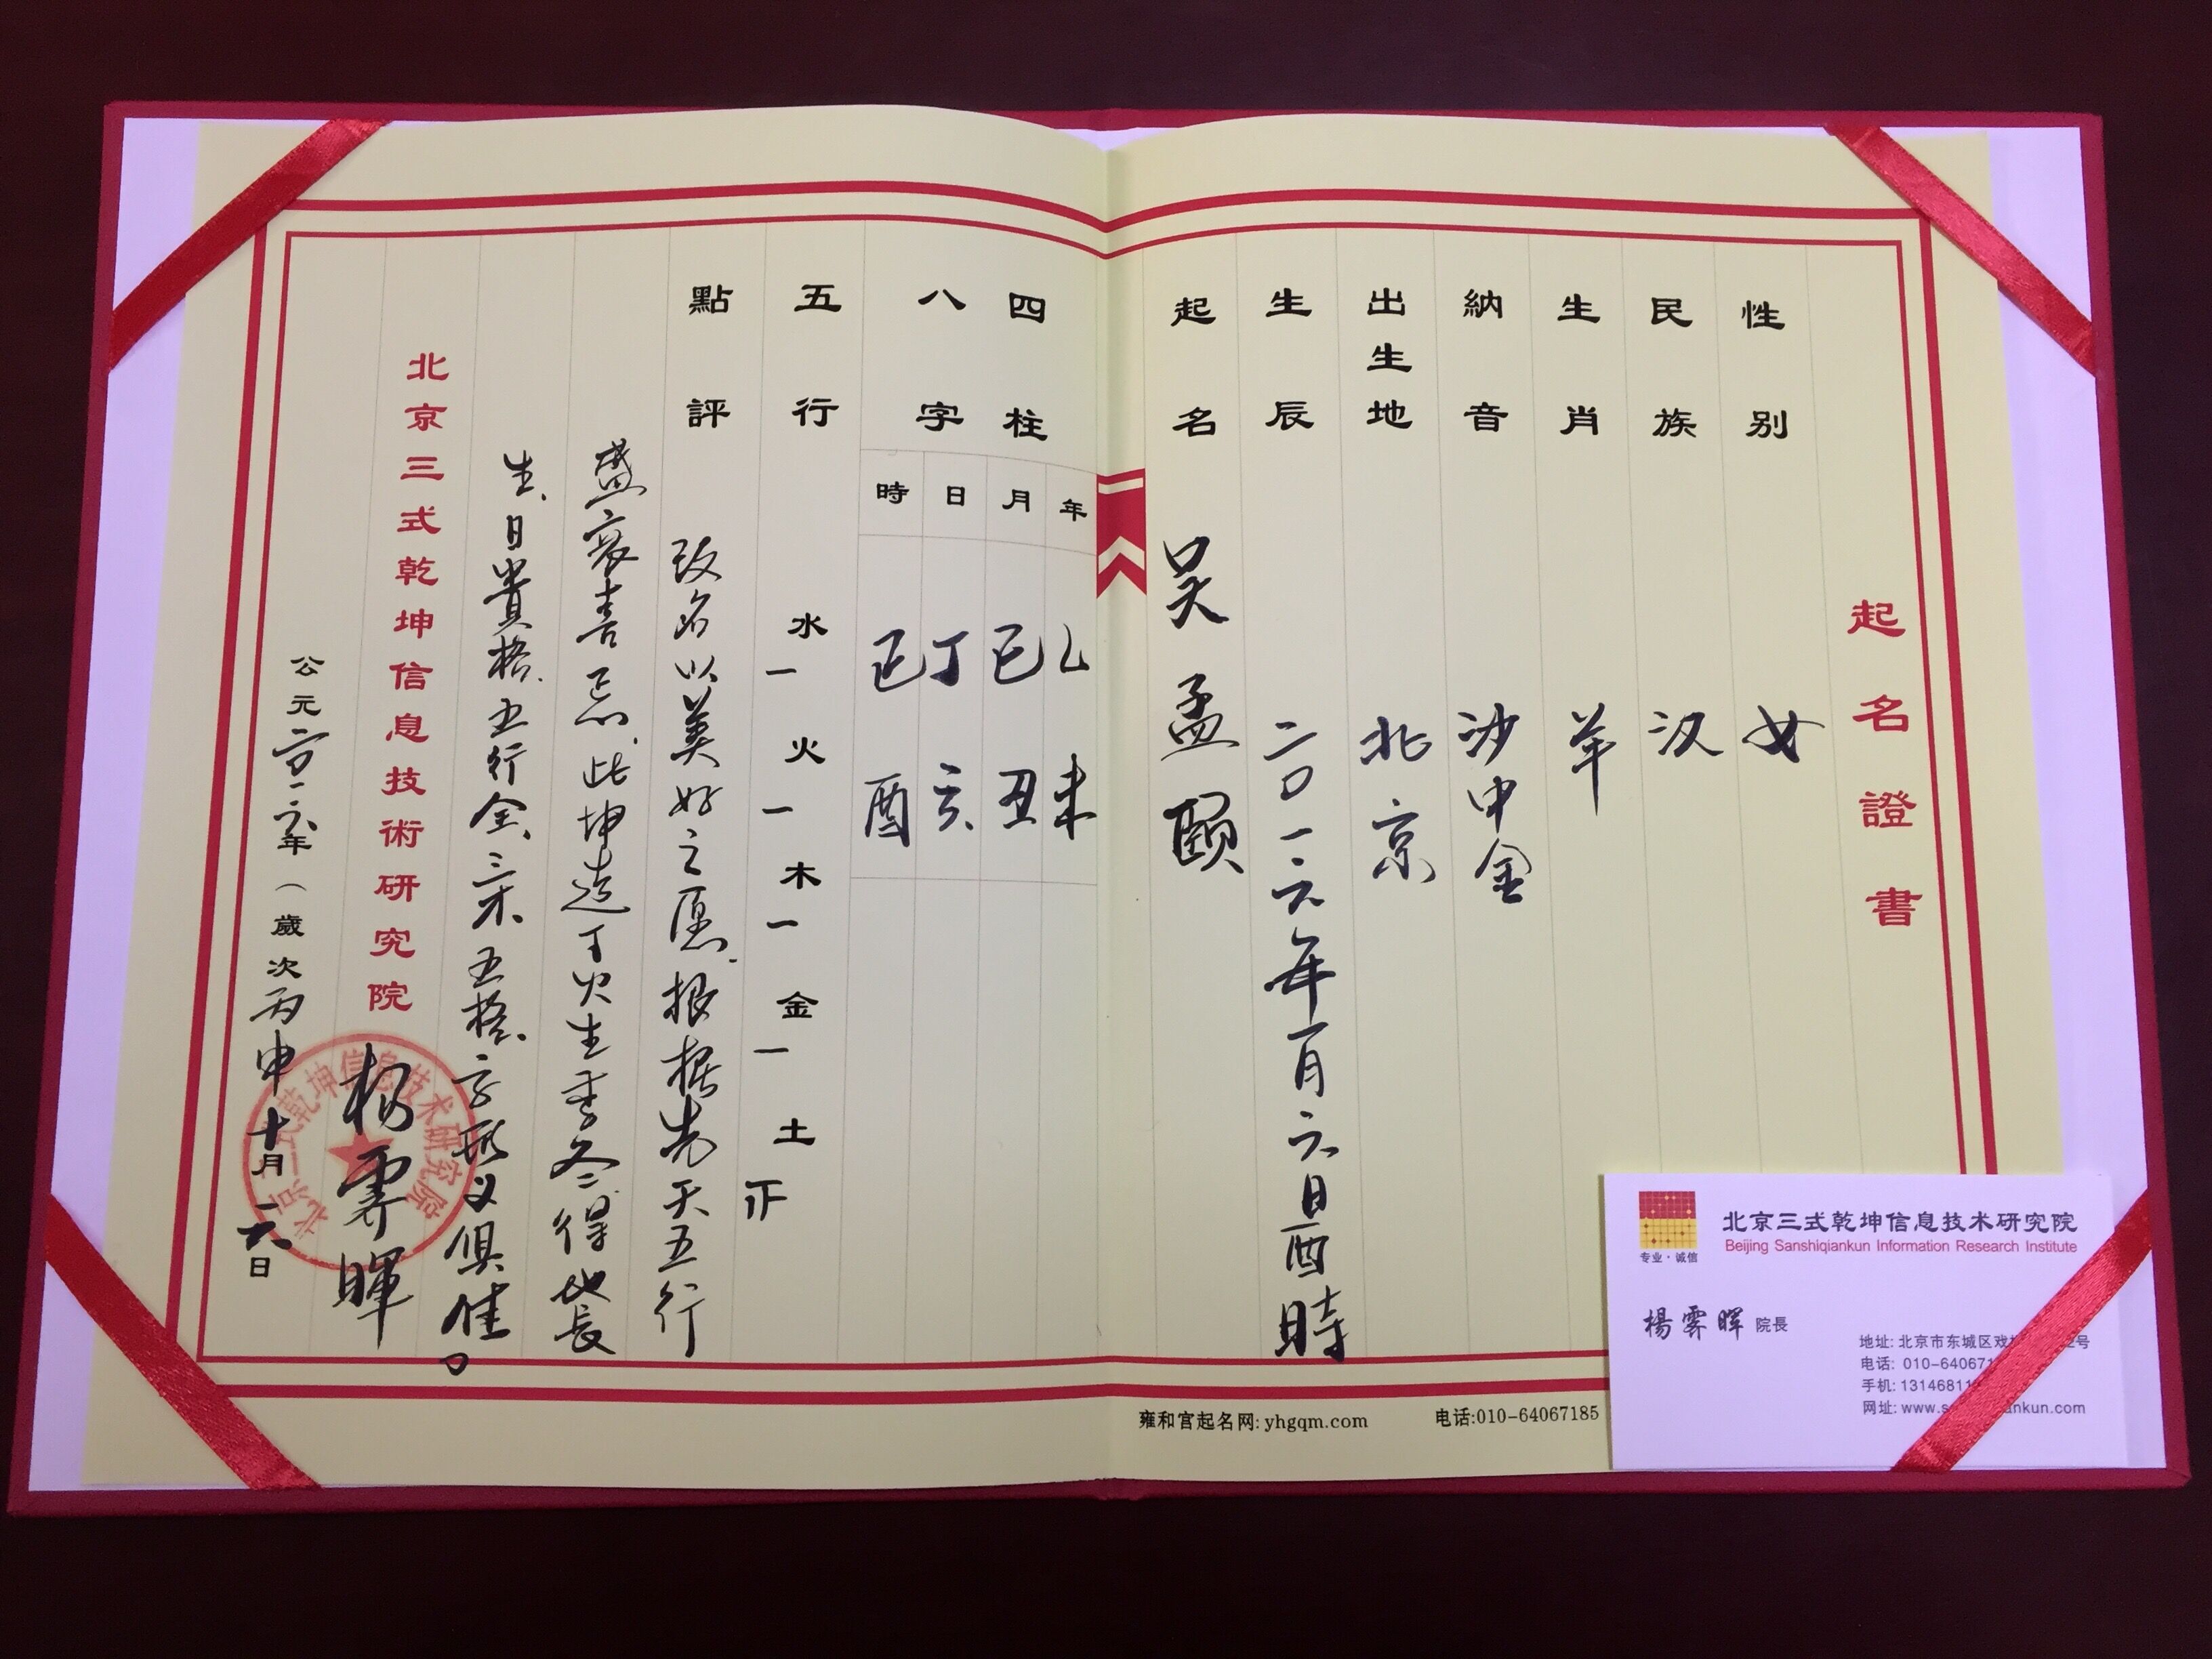 起名證書
性别 女
民族 汉
生肖 羊
納音 沙中金
出生地 北京
生辰 二〇一六年一月六日酉時
起名 吴孟颐
四柱
八字
年 乙未
月 己丑
日 丁亥
時 己酉
五行 水一 火一 木一 金一 土
點評 改名以美好之愿.根据先天五行
盛衰喜忌.此坤造丁火生季冬.得地長
生.日貴格.五行全.三才.五格.字形义俱佳。
北京三式乾坤信息技術研究院
杨霁暉
公元二〇一六年（歲次丙申十月一六日
北京三式乾坤信息技术研究院
雍和宫起名网: yhgqm.com
电话:010-64067185
专业·诚信
北京三式乾坤信息技术研究院
Beijing Sanshiqiankun Information Research Institute
楊霁暉 院長
地址: 北京市东城区戏 2号
电话: 010-640671
手机: 1314681
网址: www.s ankun.com